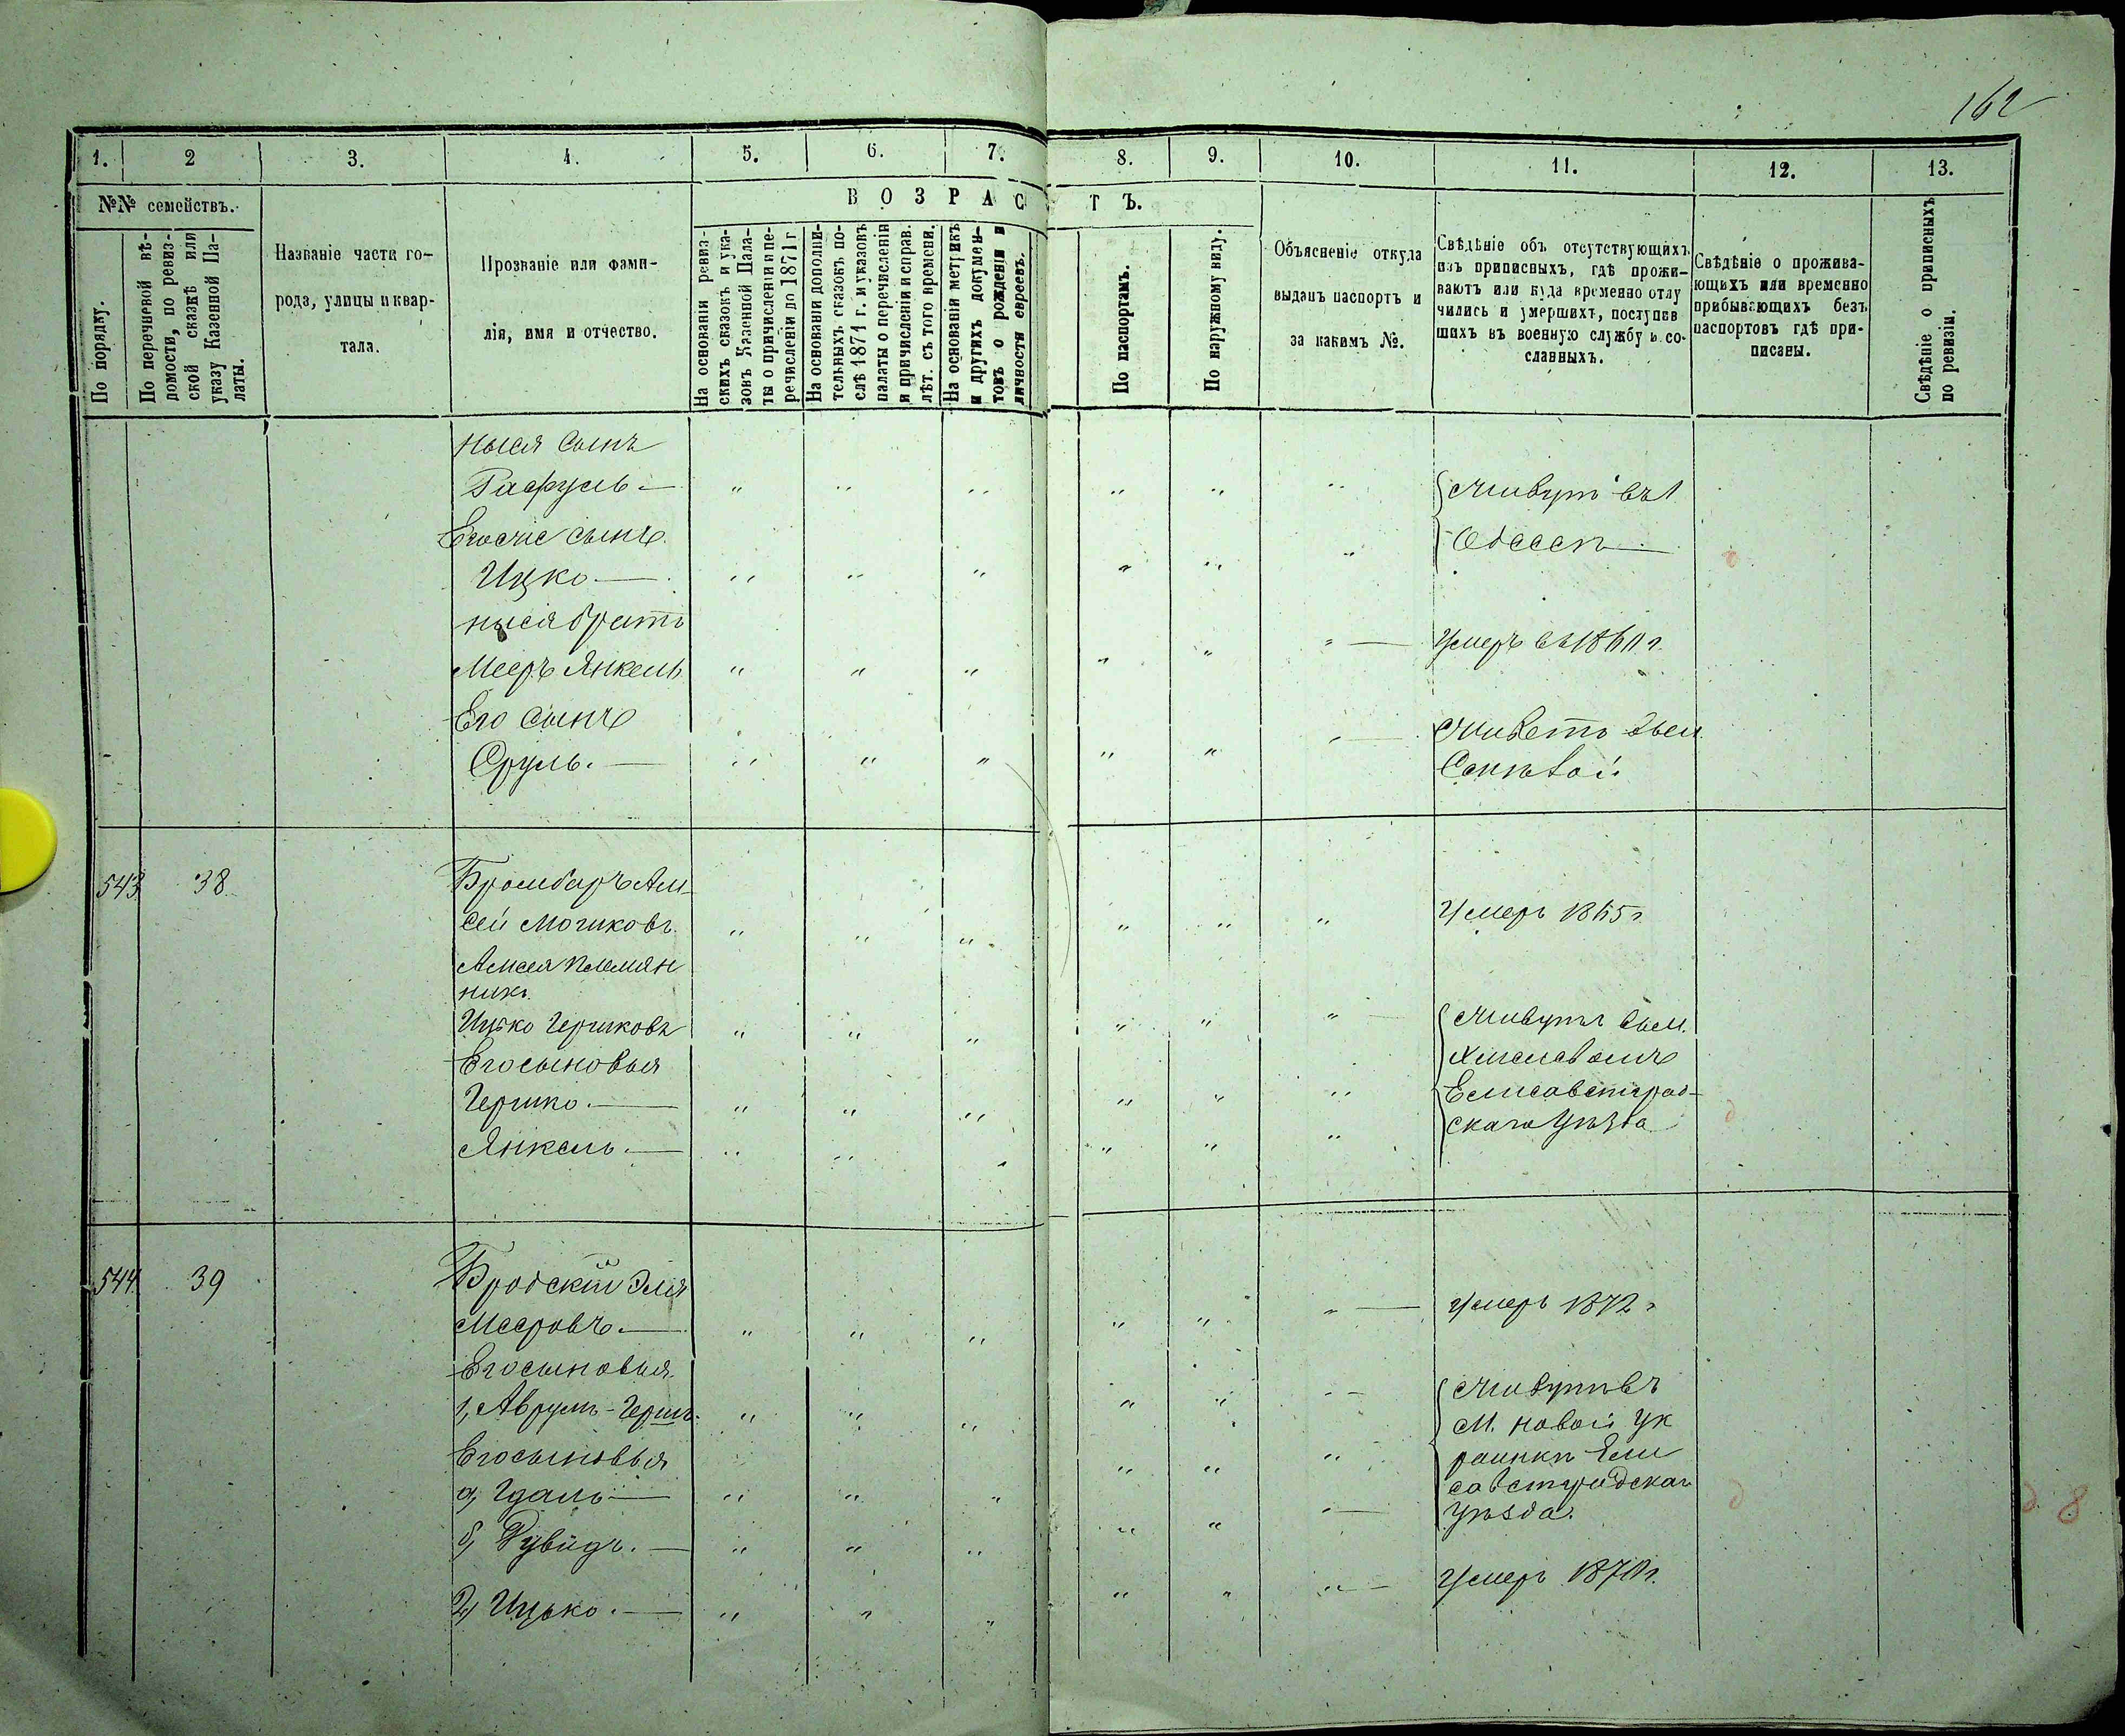 162
1. 2 3. 4. 5. 6. 7. 8. 9. 10. 11. 12. 13.
№№ семействъ.
В О З Р А С Т Ъ.
По порядку.
По перечневой вѣ-
домости, по ревиз-
ской сказкѣ или
указу Казенной Па-
латы.
Названіе части го-
рода, улицы и квар-
тала.
Прозваніе или фами-
лія, имя и отчество.
На основаніи ревиз-
скихъ сказокъ и ука-
зовъ Казенной Пала-
ты о причисленіи и пе-
речисленіи до 1871 г.
На основаніи дополни-
тельныхъ сказокъ по-
слѣ 1871 г. и указовъ
палаты о перечисленіи
и причисленіи и справ.
лѣт. съ того времени.
На основаніи метрикъ
и другихъ докумен-
товъ о рожденіи и
личности евреевъ.
По паспортамъ.
По наружному виду.
Объясненіе откуда
выданъ паспортъ и
за какимъ №.
Свѣдѣніе объ отсутствующихъ
изъ приписныхъ, гдѣ прожи-
ваютъ или куда временно отлу
чились и умершихъ, поступив
шихъ въ военную службу и со-
сланныхъ.
Свѣдѣніе о прожива-
ющихъ или временно
прибывающихъ безъ
паспортовъ гдѣ при-
писаны.
Свѣдѣніе о приписныхъ
по ревизіи.
сынъ
Рафуль —
Живутъ въ
Егоже сынъ
Одессѣ —
Ицко —
братъ
Мееръ Янкель
Умеръ въ 1860 г.
Его сынъ
Живетъ
Сруль. —
543 38
Бромбаръ Ам-
сей Мошковъ
Умеръ 1865 г.
Амсея племян
никъ.
Ицко Гершковъ
Живутъ въ м.
Его сыновья
Гершко. —
Елисаветград-
Янкель. —
скаго Уѣзда
544 39
Бродскій Эля
Мееровъ. —
Умеръ 1872 г
Его сыновья
1, Аврумъ-Гершъ.
Живутъ въ
М. новой Ук
Его сыновья
раинки Ели
а, Гдаль —
саветградскаго
уѣзда.
б, Рувидъ. —
2, Ицько. —
Умеръ 1870 г.
д 8